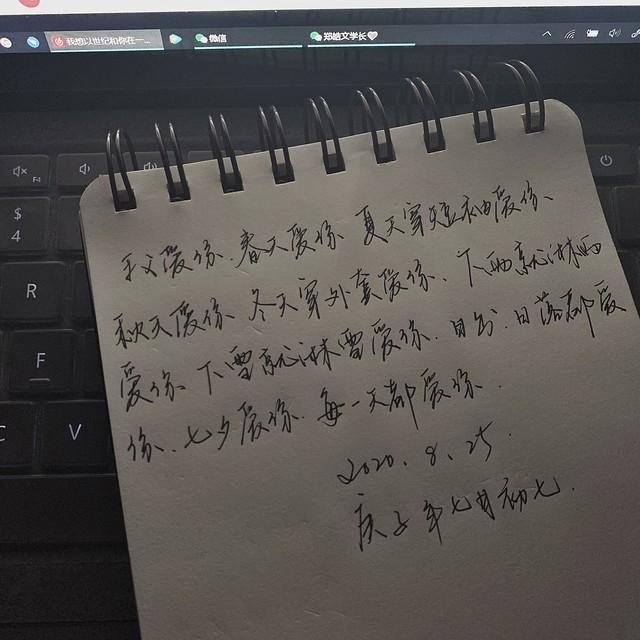 我想以世纪和你在一...
微信
郑皓文学长
F4
$
4
R
F
C
V
爱你、春天爱你、夏天穿短袖爱你、
秋天爱你、冬天穿外套爱你、下雨就淋雨
爱你、下雪就淋雪爱你、日出、日落都爱
你、七夕爱你、每一天都爱你.
2020.8.25.
庚子年七月初七.